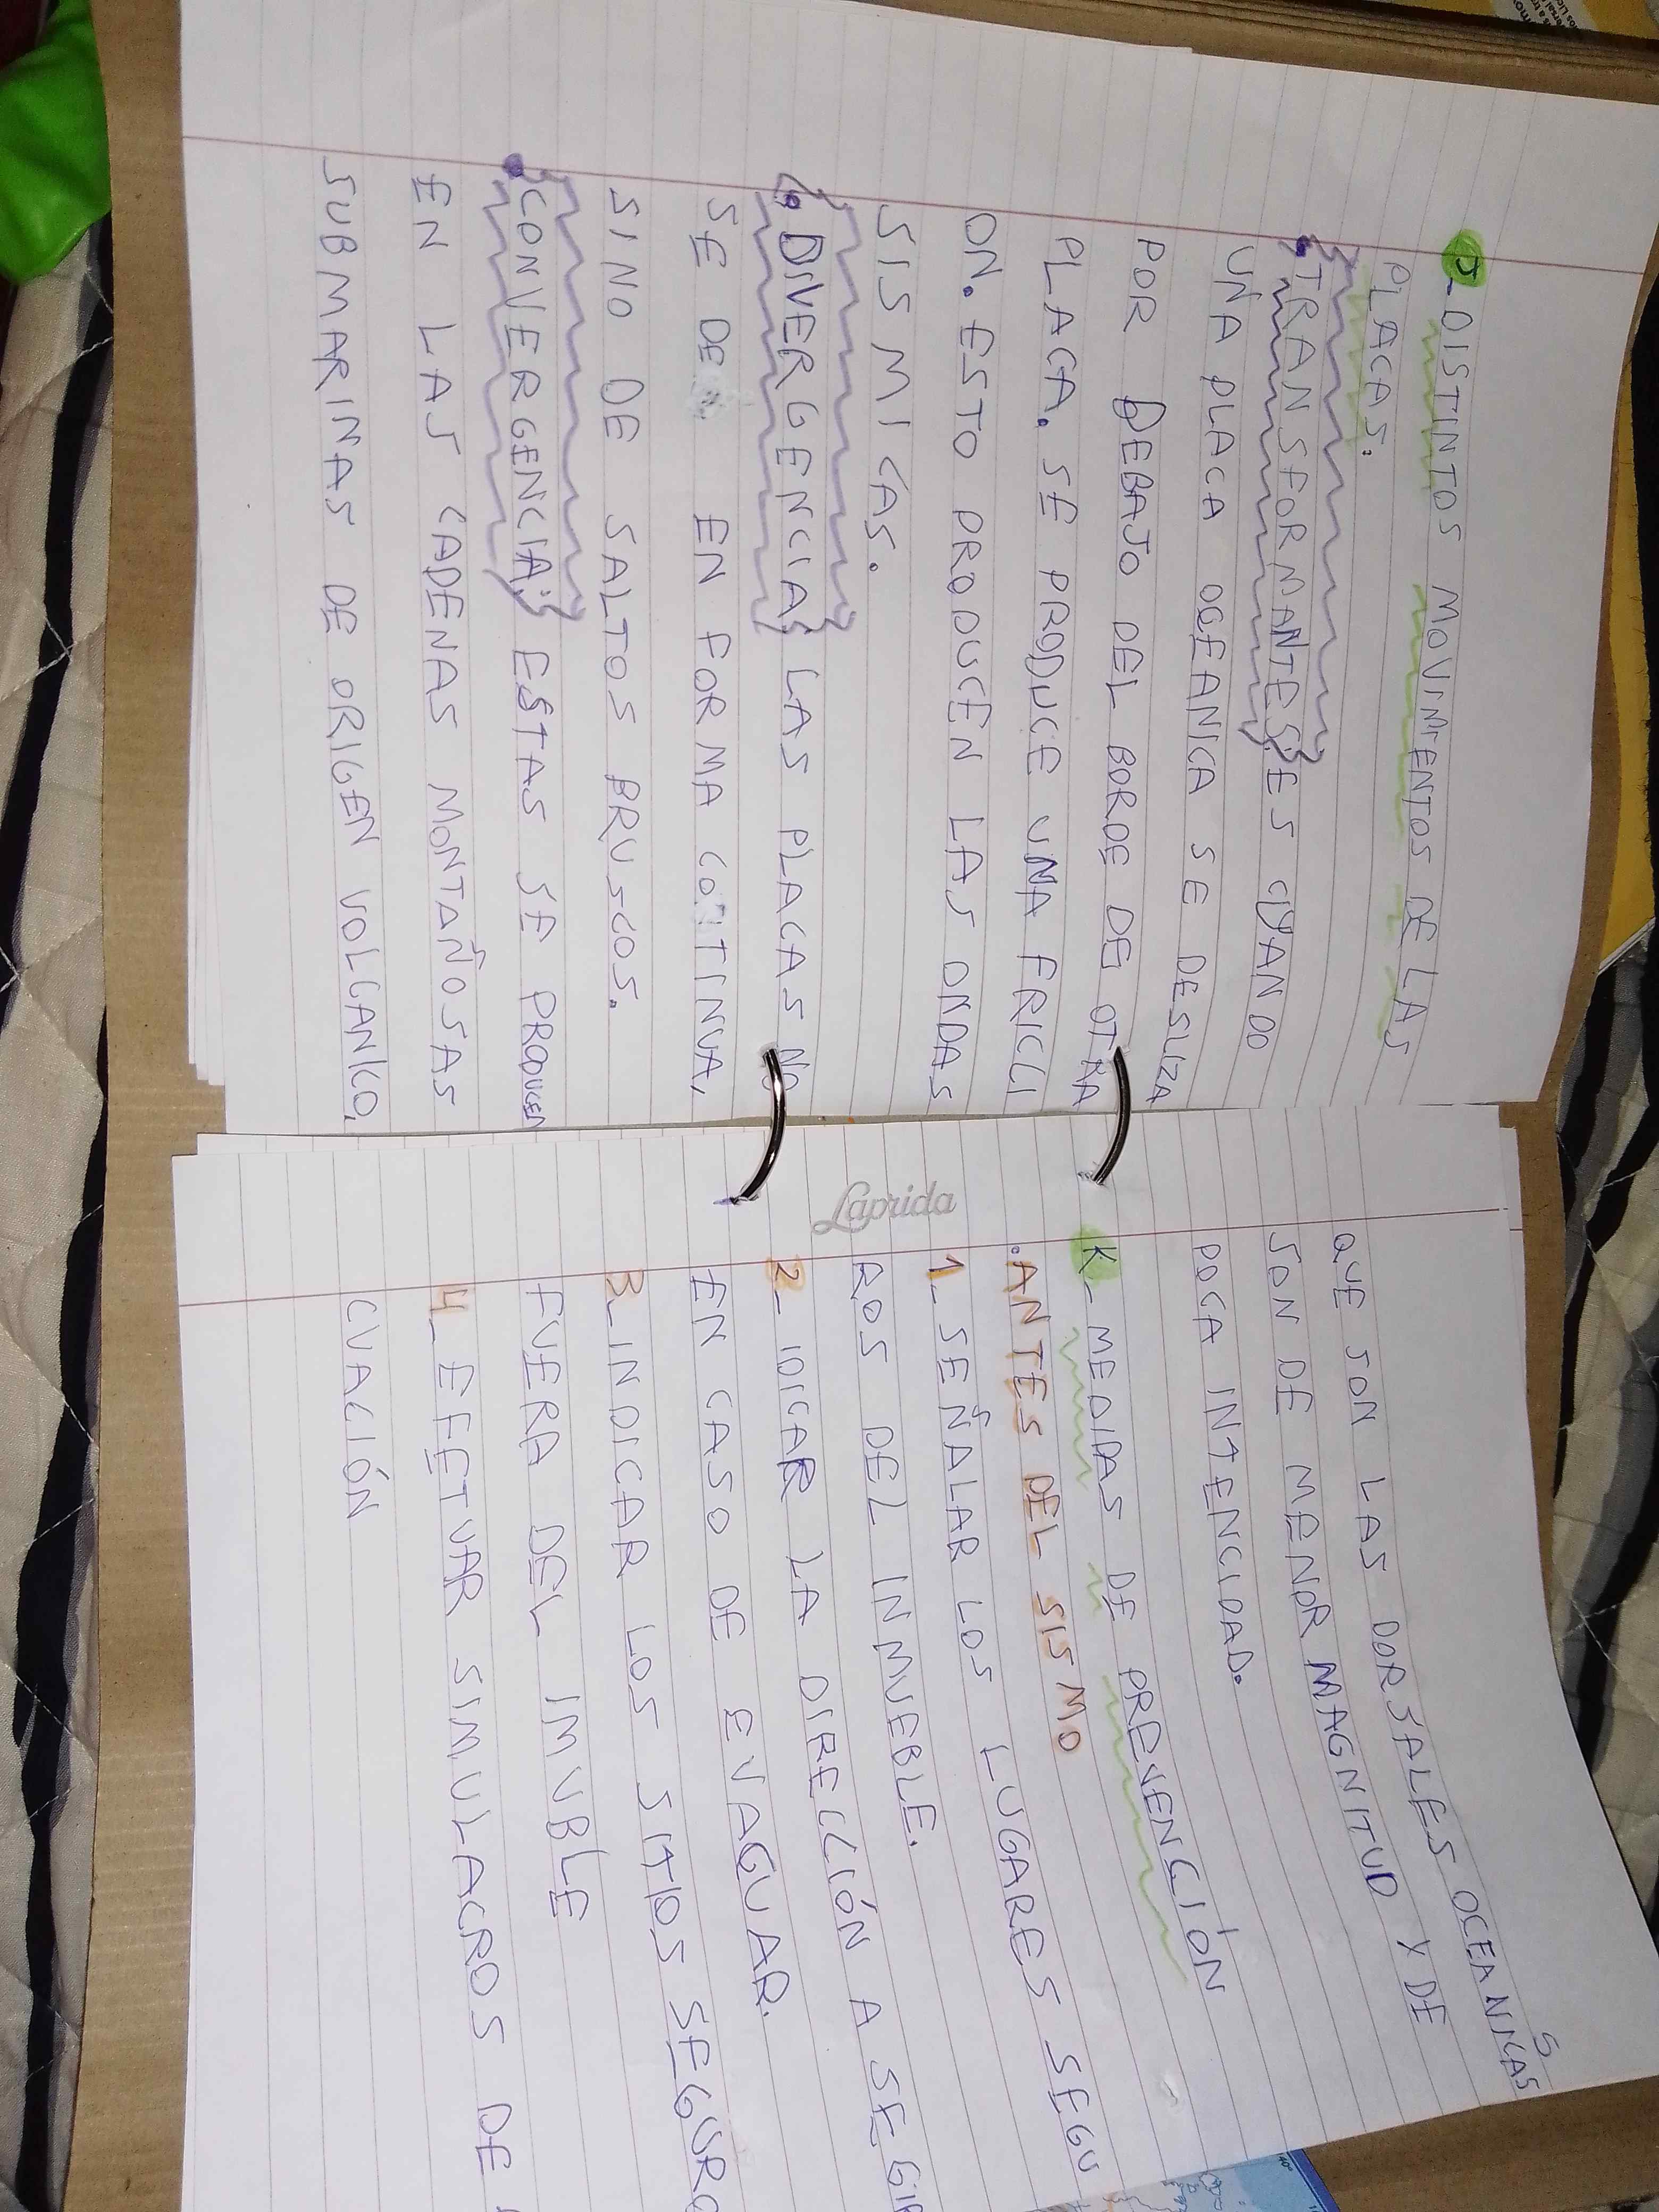 J_DISTINTOS MOVIMIENTOS DE LAS
PLACAS:
• TRANSFORMANTES: ES CUANDO
UNA PLACA OCEANICA SE DESLIZA
POR DEBAJO DEL BORDE DE OTRA
PLACA. SE PRODUCE UNA FRICCI
ON. ESTO PRODUCEN LAS ONDAS
SISMICAS.
• DIVERGENCIA: LAS PLACAS NO
SE DE EN FORMA
SINO DE SALTOS BRUSCOS.
• CONVERGENCIA: ESTAS SE PRODUCEN
EN LAS CADENAS MONTAÑOSAS
SUBMARINAS DE ORIGEN VOLCANICO,
Laprida
QUE SON LAS DORSALES OCEANICAS
SON DE MENOR MAGNITUD Y DE
POCA INTENCIDAD.
K_MEDIDAS DE PREVENCIÓN
.ANTES DEL SISMO
1_ SEÑALAR LOS LUGARES SEGU
ROS DEL INMUEBLE.
2_ IDICAR LA DIRECCIÓN A SEGIR
EN CASO DE EVAGUAR.
3_INDICAR LOS SITIOS SEGURO
FUERA DEL IMUBLE
4_EFETUAR SIMULACROS DE
CUACIÓN